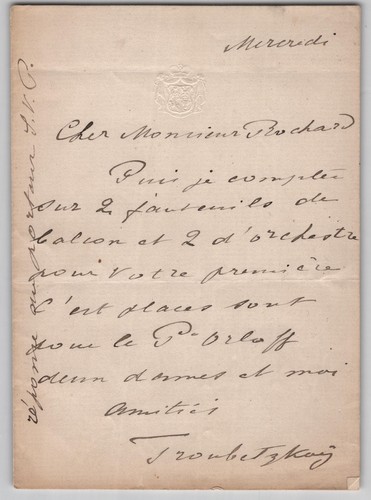 Mercredi
Cher Monsieur Rochard
Puis je compter
sur 2 fauteuils de
balcon et 2 d'orchestre
pour votre première
C'est places sont
pour le Pce Orloff
deux dames et moi
Amitiés
Troubetzkoÿ
réponse au porteur S.V.P.